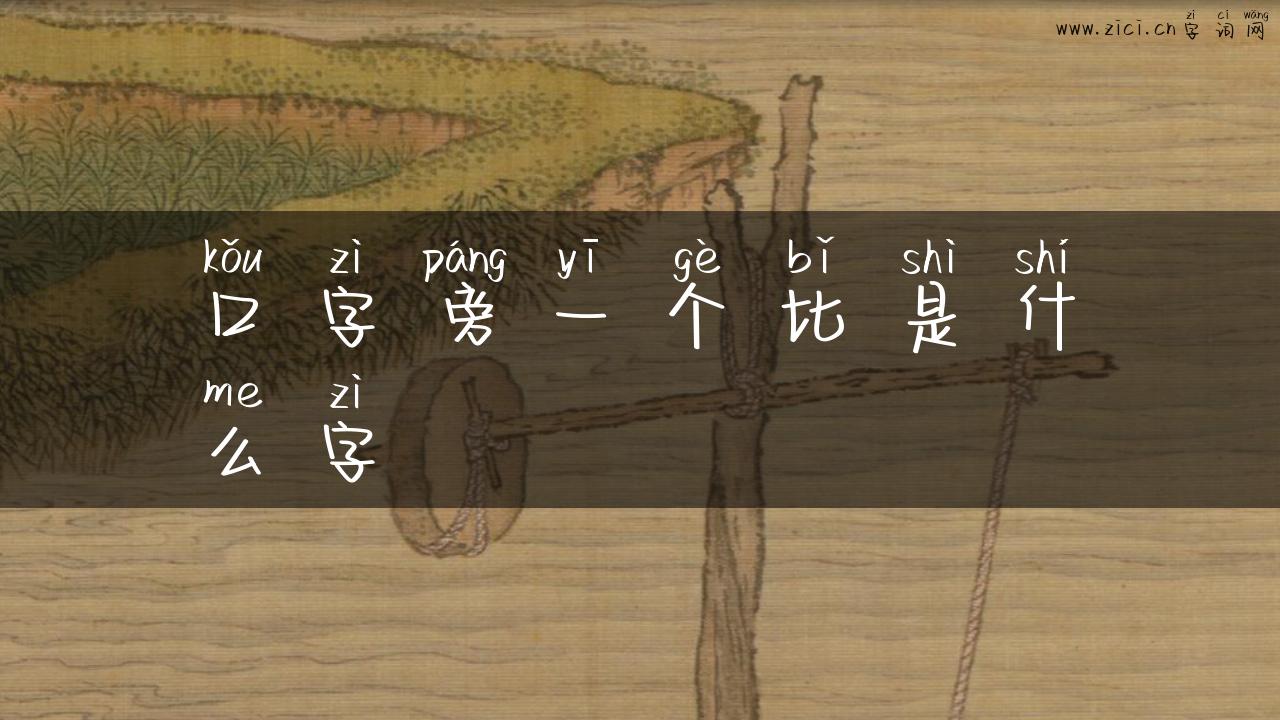 zì cí wǎng
www.zici.cn字词网
kǒu zì páng yī gè bǐ shì shí
口字旁一个比是什
me zì
么字